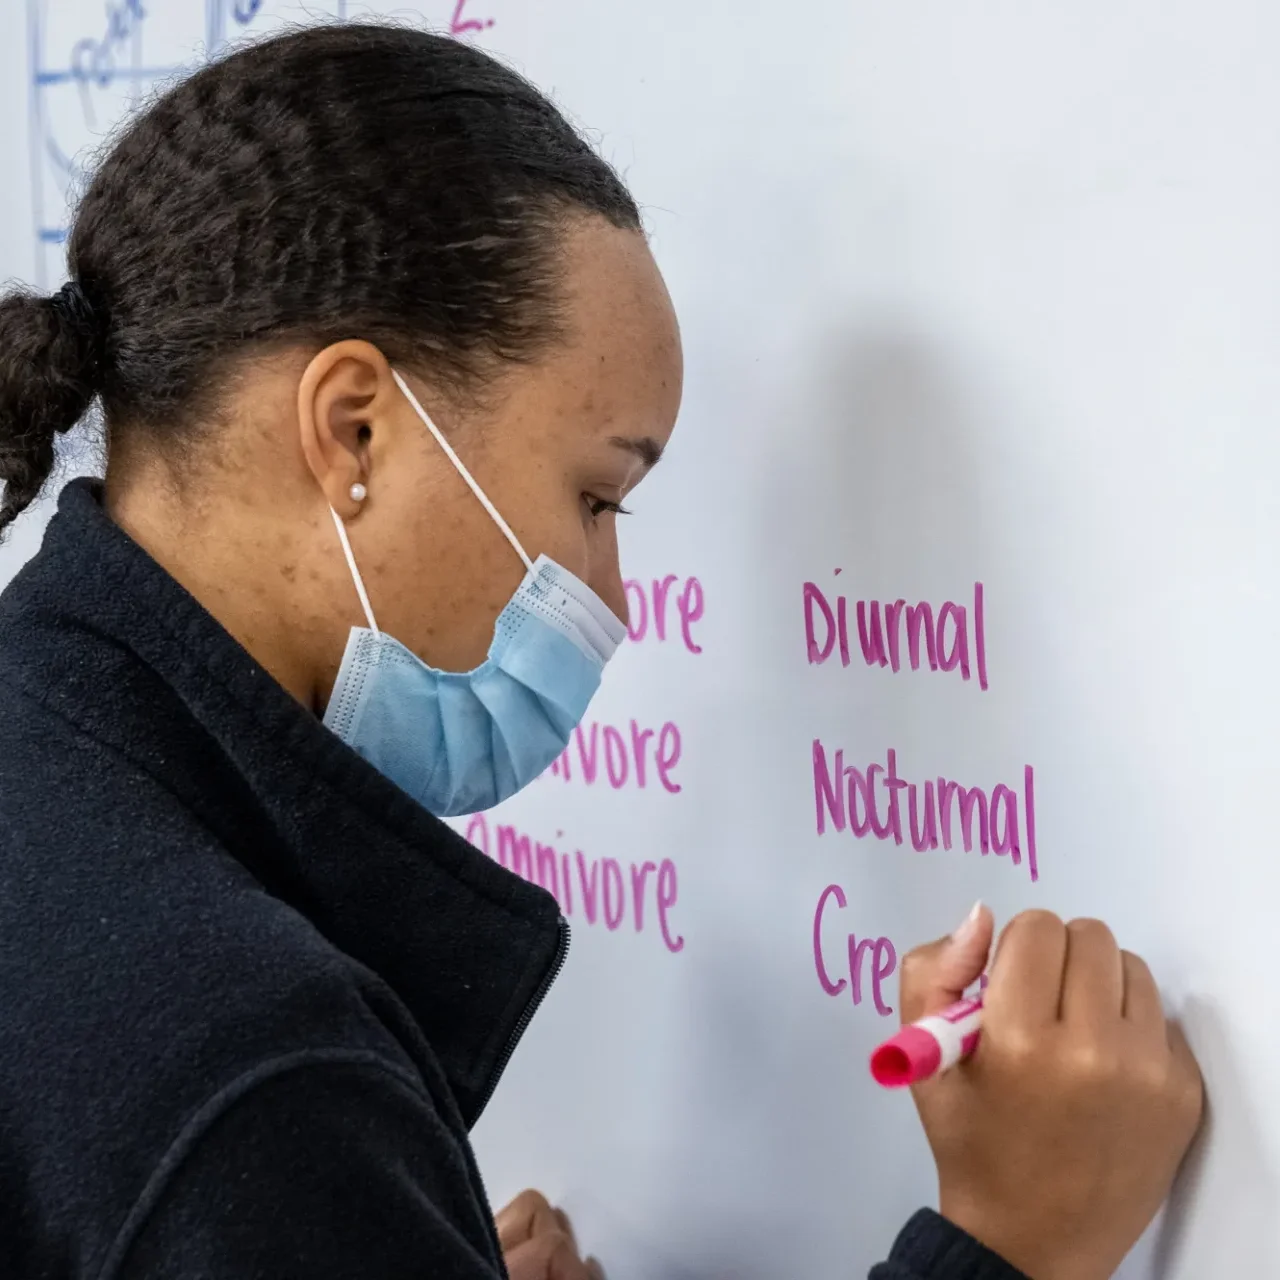 2.
ore Diurnal
ivore Nocturnal
Omnivore Cre